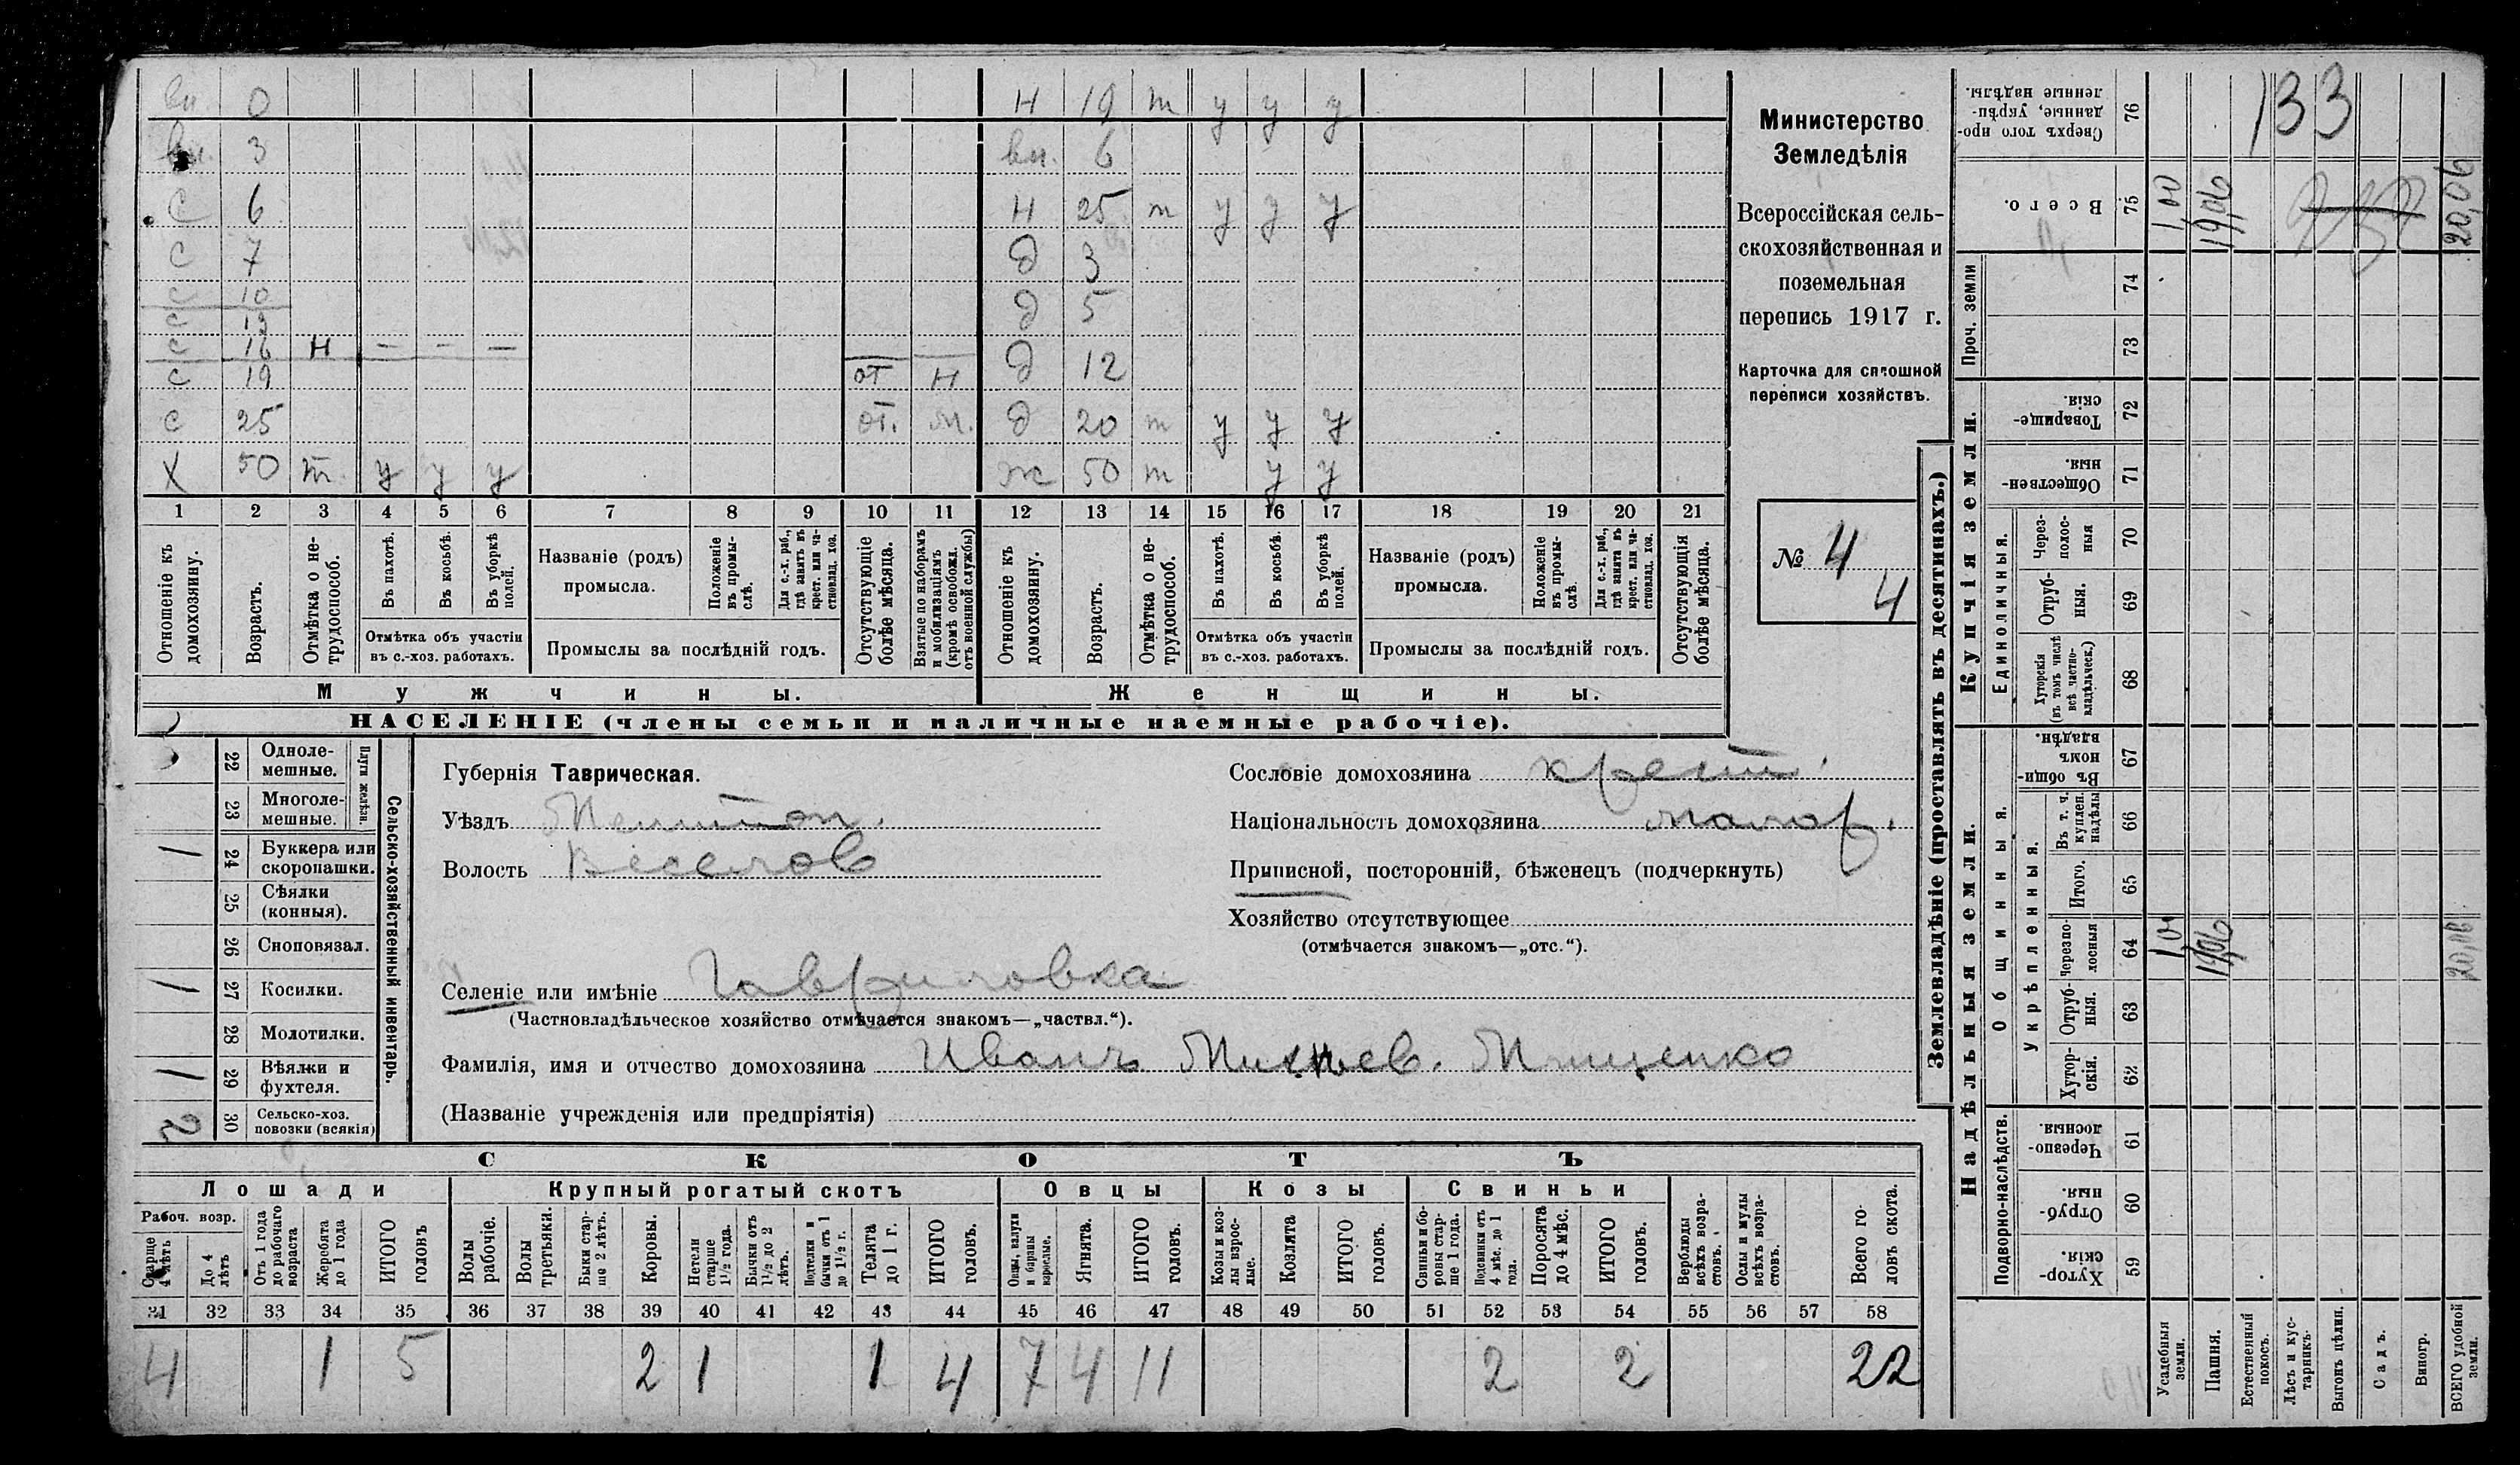 вн. 0 Н 19 т у у у
вн. 3 вн. 6
с 6 Н 25 т у у у
с 7 д 3
с 10 д 5
с 13
с 16 Н — — —
д 12
с 19 от Н
с 25 от. м. д 20 т у у у
Х 50 т. у у у ж 50 т у у
1 2 3 4 5 6 7 8 9 10 11 12 13 14 15 16 17 18 19 20 21
Отношеніе къ домохозяину.
Возрастъ.
Отмѣтка о нетрудоспособ.
Въ пахотѣ.
Въ косьбѣ.
Въ уборкѣ полей.
Отмѣтка объ участіи въ с.-хоз. работахъ.
Названіе (родъ) промысла.
Положеніе въ промыслѣ.
Для с.-х. раб., гдѣ занятъ въ крест. или частновлад. хоз.
Промыслы за послѣдній годъ.
Отсутствующіе болѣе мѣсяца.
Взятые по наборамъ и мобилизаціямъ (кромѣ освобожд. отъ военной службы)
Отношеніе къ домохозяину.
Возрастъ.
Отмѣтка о нетрудоспособ.
Въ пахотѣ.
Въ косьбѣ.
Въ уборкѣ полей.
Отмѣтка объ участіи въ с.-хоз. работахъ.
Названіе (родъ) промысла.
Положеніе въ промыслѣ.
Для с.-х. раб., гдѣ занята въ крест. или частновлад. хоз.
Промыслы за послѣдній годъ.
Отсутствующія болѣе мѣсяца.
Мужчины. Женщины.
НАСЕЛЕНІЕ (члены семьи и наличные наемные рабочіе).
Министерство
Земледѣлія
Всероссійская сель-
скохозяйственная и
поземельная
перепись 1917 г.
Карточка для сплошной
переписи хозяйствъ.
№ 4
4
Сельско-хозяйственный инвентарь.
Плуги желѣзн.
22 Одноле-
мешные.
23 Многоле-
мешные.
1 24 Буккера или
скоропашки.
25 Сѣялки
(конныя).
26 Сноповязал.
1 27 Косилки.
28 Молотилки.
1 29 Вѣялки и
фухтеля.
2 30 Сельско-хоз.
повозки (всякія)
Губернія Таврическая.
Уѣздъ Мелитоп.
Волость Веселов
Сословіе домохозяина крест.
Національность домохозяина малор.
Приписной, посторонній, бѣженецъ (подчеркнуть)
Хозяйство отсутствующее
(отмѣчается знакомъ—„отс.“).
Селеніе или имѣніе Гавриловка
(Частновладѣльческое хозяйство отмѣчается знакомъ—„частвл.“).
Фамилія, имя и отчество домохозяина Иванъ Мищенко
(Названіе учрежденія или предпріятія)
СКОТЪ
Лошади Крупный рогатый скотъ Овцы Козы Свиньи
Рабоч. возр.
Старше 4 лѣтъ
До 4 лѣтъ
Отъ 1 года до рабочаго возраста
Жеребята до 1 года
ИТОГО головъ
Волы рабочіе.
Волы третьяки.
Быки старше 2 лѣтъ.
Коровы.
Нетели старше 1½ года.
Бычки отъ 1½ до 2 лѣтъ.
Подтелки и бычки отъ 1 до 1½ г.
Телята до 1 г.
ИТОГО головъ.
Овцы, валухи и бараны взрослые.
Ягнята.
ИТОГО головъ.
Козы и козлы взрослые.
Козлята
ИТОГО головъ.
Свиньи и боровы старше 1 года.
Подсвинки отъ 4 мѣс. до 1 года.
Поросята до 4 мѣс.
ИТОГО головъ.
Верблюды всѣхъ возрастовъ.
Ослы и мулы всѣхъ возрастовъ.
Всего головъ скота.
31 32 33 34 35 36 37 38 39 40 41 42 43 44 45 46 47 48 49 50 51 52 53 54 55 56 57 58
4 1 5 2 1 1 4 7 4 11 2 2 22
Землевладѣніе (проставлять въ десятинахъ.)
Купчія земли.
Надѣльныя земли.
133
Сверхъ того проданные, укрѣпленные надѣлы. 76
Всего. 75 1,00 19,06 20,06
Проч. земли 74
73
Товарищескія. 72
Общественныя. 71
Единоличныя.
Черезполосныя 70
Отрубныя. 69
Хуторскія (въ томъ числѣ всѣ частновладѣльческ.) 68
Общинныя.
Въ общинномъ владѣн. 67
Укрѣпленныя.
Въ т. ч. куплен. надѣлы 66
Итого. 65
Черезполосныя 64 1,00 19,06 20,06
Отрубныя. 63
Хуторскія. 62
Подворно-наслѣдств.
Черезполосныя. 61
Отрубныя. 60
Хуторскія. 59
Усадебныя земли.
Пашня.
Естественный покосъ.
Лѣсъ и кустарникъ.
Выгонъ цѣлин.
Садъ.
Виногр.
ВСЕГО удобной земли.